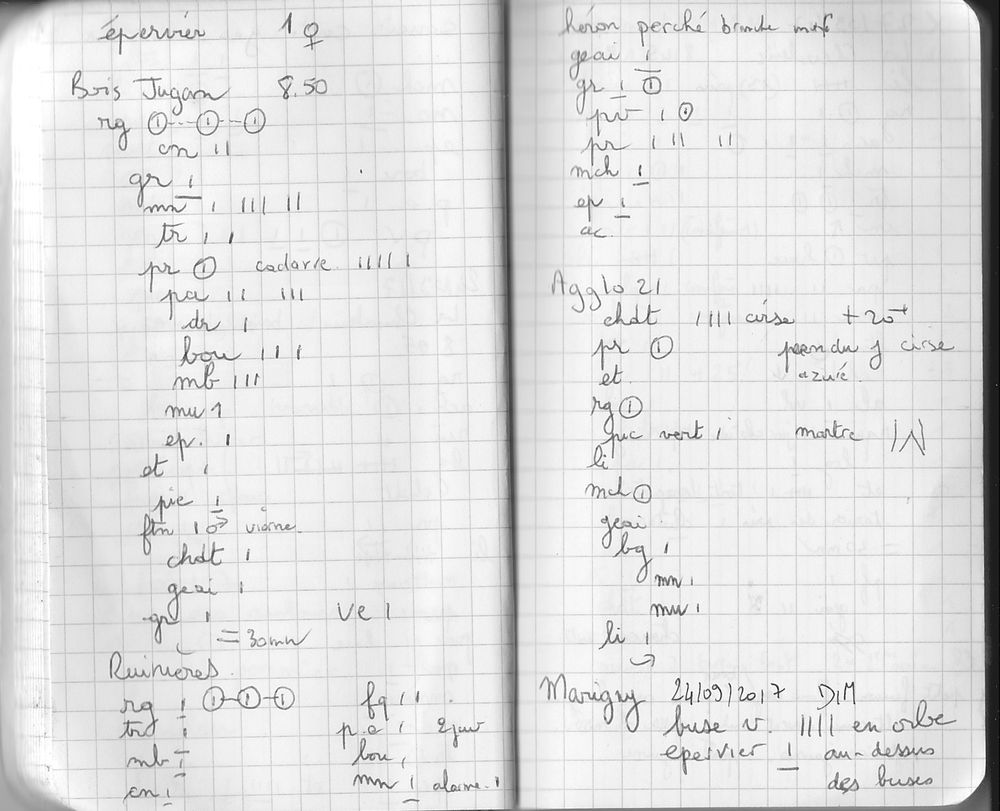 épervier 1 ♀
Bois Jugan 8.50
rg ①--①--①
cn ıı
gr ı
mn ı ııı ıı
tr ı ı
pr ① cadavre ııııı
pa ıı ııı
dr ı
bou ııı
mb ııı
mu 1
ep. ı
et ı
pie ı
ftn 1 ♂ viorne
chdt ı
geai ı
gr ı ve ı
= 30mn
Ruinières
rg ı ①-①-① fq ıı
trd ı p.e ı 2 juv
mb ı bou ı
cn ı mn ı alarme. ı
héron perché branche
geai ı
gr ı ①
pv ı ①
pr ı ıı ıı
mch ı
ep ı
ac.
Agglo 21
chdt ıııı cirse + 20
pr ① pendu cirse
et. azuré
rg ①
pic vert ı martre
li
mch ①
geai
bg ı
mn ı
mu ı
li ı
Marigny 24/09/2017 DIM
buse v. ıııı en orbe
epervier ı au-dessus
des buses